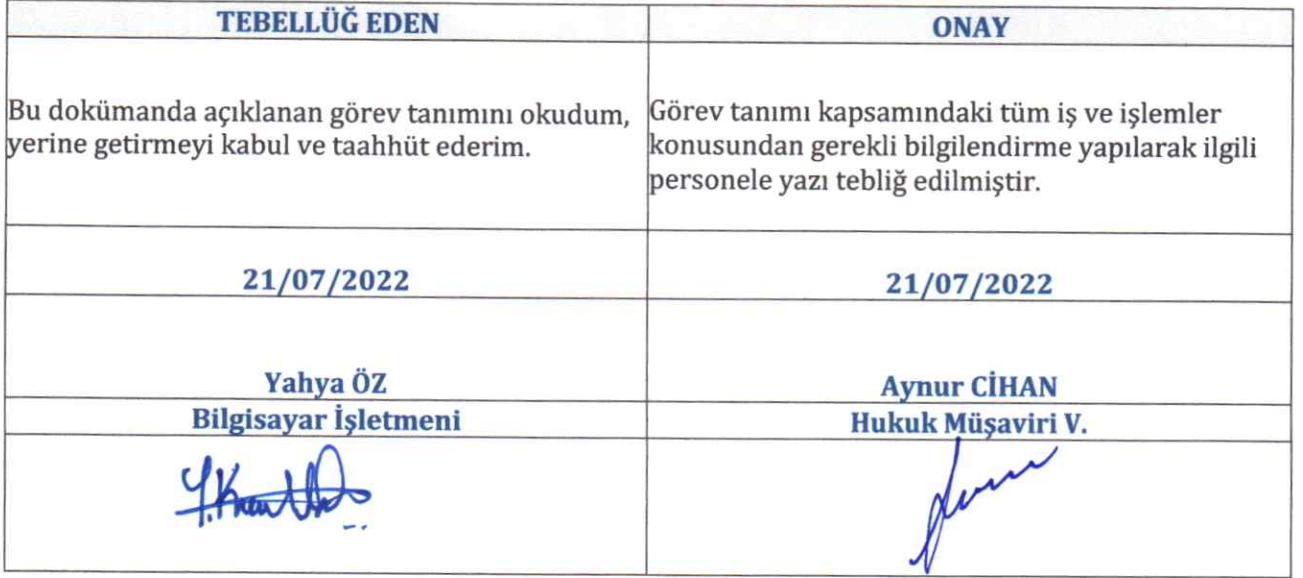 TEBELLÜĞ EDEN
ONAY
Bu dokümanda açıklanan görev tanımını okudum,
yerine getirmeyi kabul ve taahhüt ederim.
Görev tanımı kapsamındaki tüm iş ve işlemler
konusundan gerekli bilgilendirme yapılarak ilgili
personele yazı tebliğ edilmiştir.
21/07/2022
21/07/2022
Yahya ÖZ
Aynur CİHAN
Bilgisayar İşletmeni
Hukuk Müşaviri V.